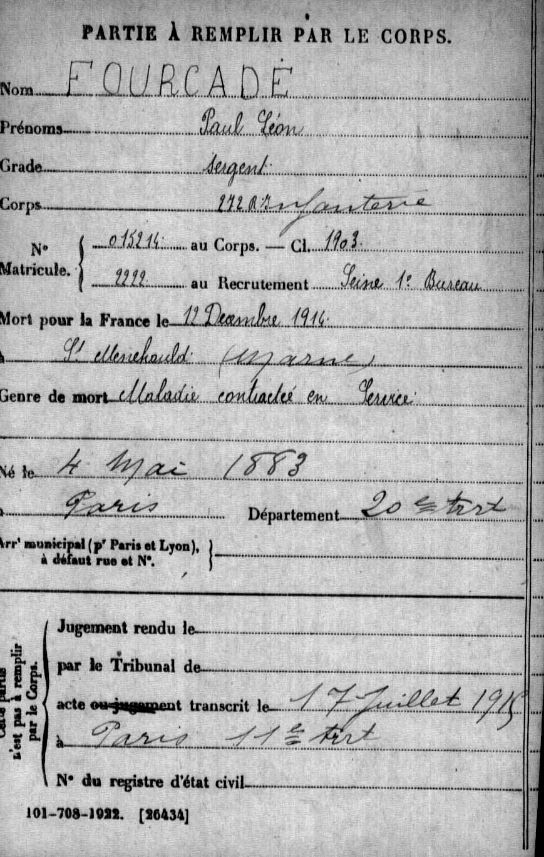 PARTIE À REMPLIR PAR LE CORPS.
Nom FOURCADE
Prénoms Paul Léon
Grade Sergent
Corps 272 R. Infanterie
N° Matricule. 015214 au Corps. — Cl. 1903
2222 au Recrutement Seine 1e Bureau
Mort pour la France le 12 Décembre 1914
à St Menehould (Marne)
Genre de mort Maladie contractée en Service
Né le 4 Mai 1883
à Paris Département 20e Arrt
Arrt municipal (pr Paris et Lyon),
à défaut rue et N°.
Cette partie n'est pas à remplir par le Corps.
Jugement rendu le
par le Tribunal de
acte ou jugement transcrit le 17 Juillet 1915
à Paris 11e Arrt
N° du registre d'état civil
101-708-1922. [26434]